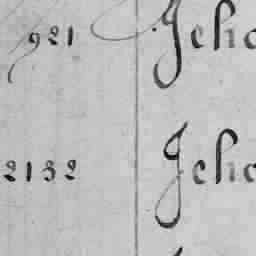 921 Jeho
2132 Jeho